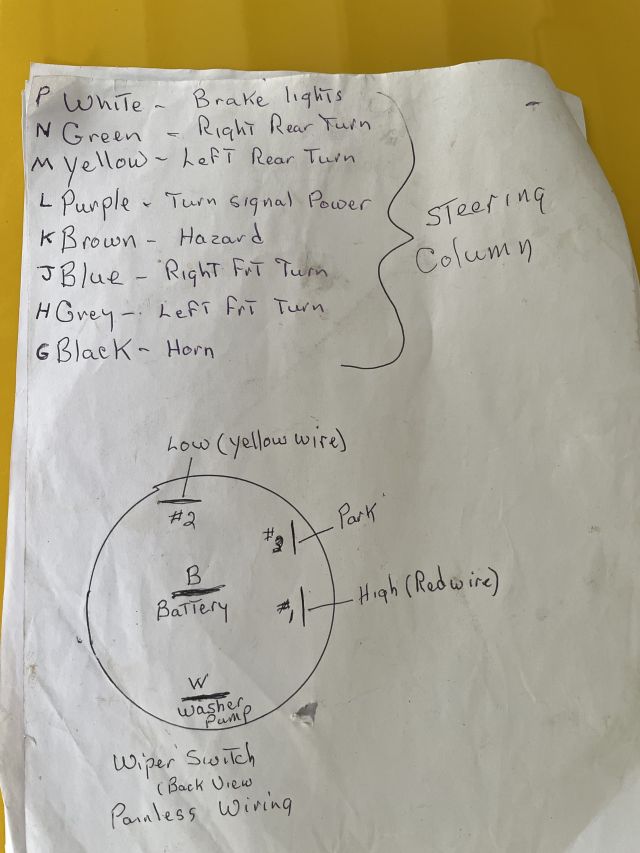 P White - Brake lights
N Green - Right Rear Turn
M Yellow - Left Rear Turn
L Purple - Turn signal Power
K Brown - Hazard
J Blue - Right Frt Turn
H Grey - Left Frt Turn
G Black - Horn
Steering
Column
Low (yellow wire)
#2
Park
#3
B
Battery
#1
High (Red wire)
W
Washer
Pump
Wiper Switch
(Back View
Painless Wiring